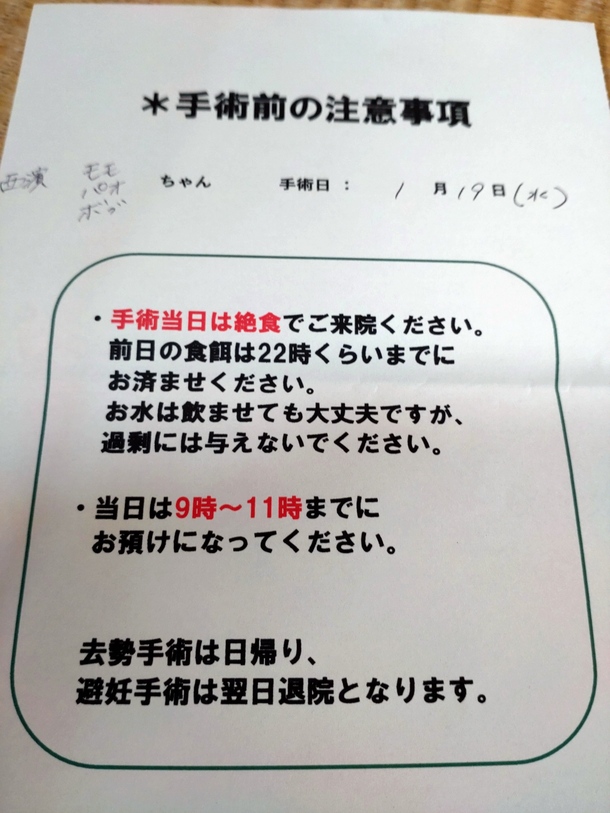 ＊手術前の注意事項
西濱 モモ ちゃん 手術日： 1月19日(水)
パオ
ボブ
・手術当日は絶食でご来院ください。
前日の食餌は22時くらいまでに
お済ませください。
お水は飲ませても大丈夫ですが、
過剰には与えないでください。
・当日は9時～11時までに
お預けになってください。
去勢手術は日帰り、
避妊手術は翌日退院となります。